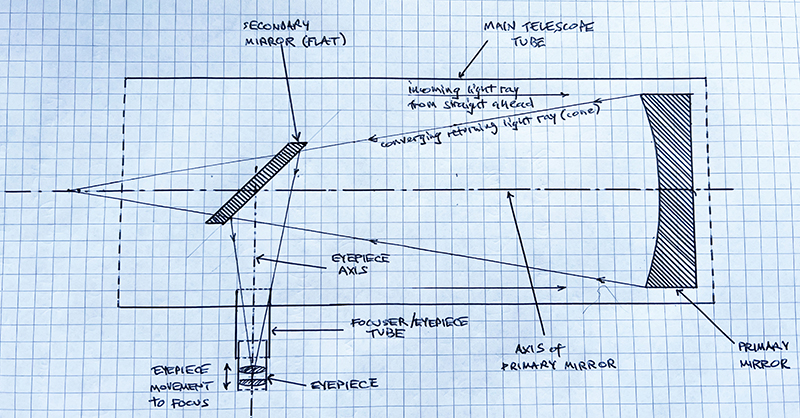 SECONDARY
MIRROR (FLAT)
MAIN TELESCOPE
TUBE
incoming light ray
from straight ahead
converging returning light ray (cone)
EYEPIECE
AXIS
FOCUSER/EYEPIECE
TUBE
AXIS of
PRIMARY MIRROR
PRIMARY
MIRROR
EYEPIECE
MOVEMENT
to FOCUS
EYEPIECE